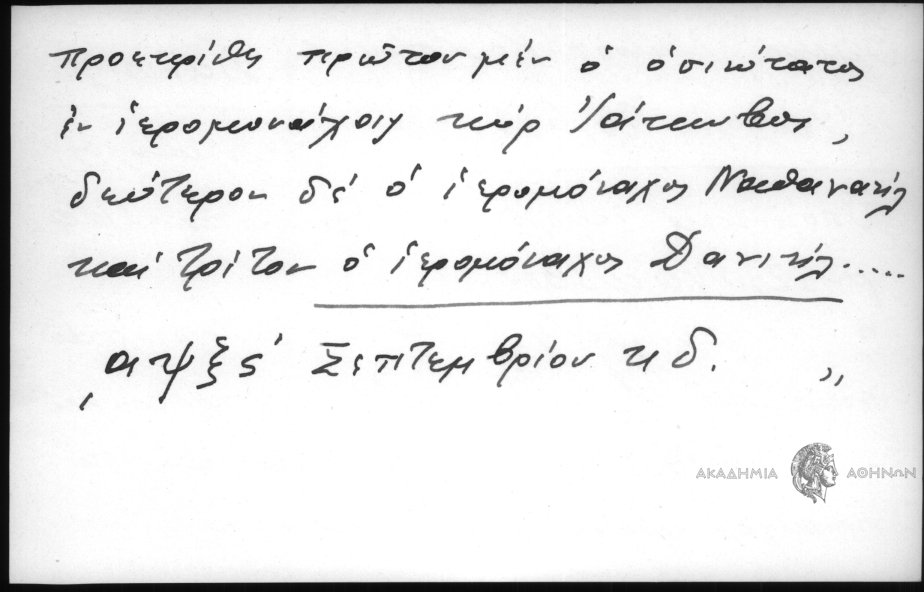 προεκρίθη πρῶτον μέν ὁ ὁσιώτατος
ἐν ἱερομονάχοις κύρ Ἰάκωβος,
δεύτερον δέ ὁ ἱερομόναχος Ναθαναήλ
καί τρίτον ὁ ἱερομόναχος Δανιήλ.....
͵αψξς΄ Σεπτεμβρίου κδ. ,,
ΑΚΑΔΗΜΙΑ ΑΘΗΝΩΝ